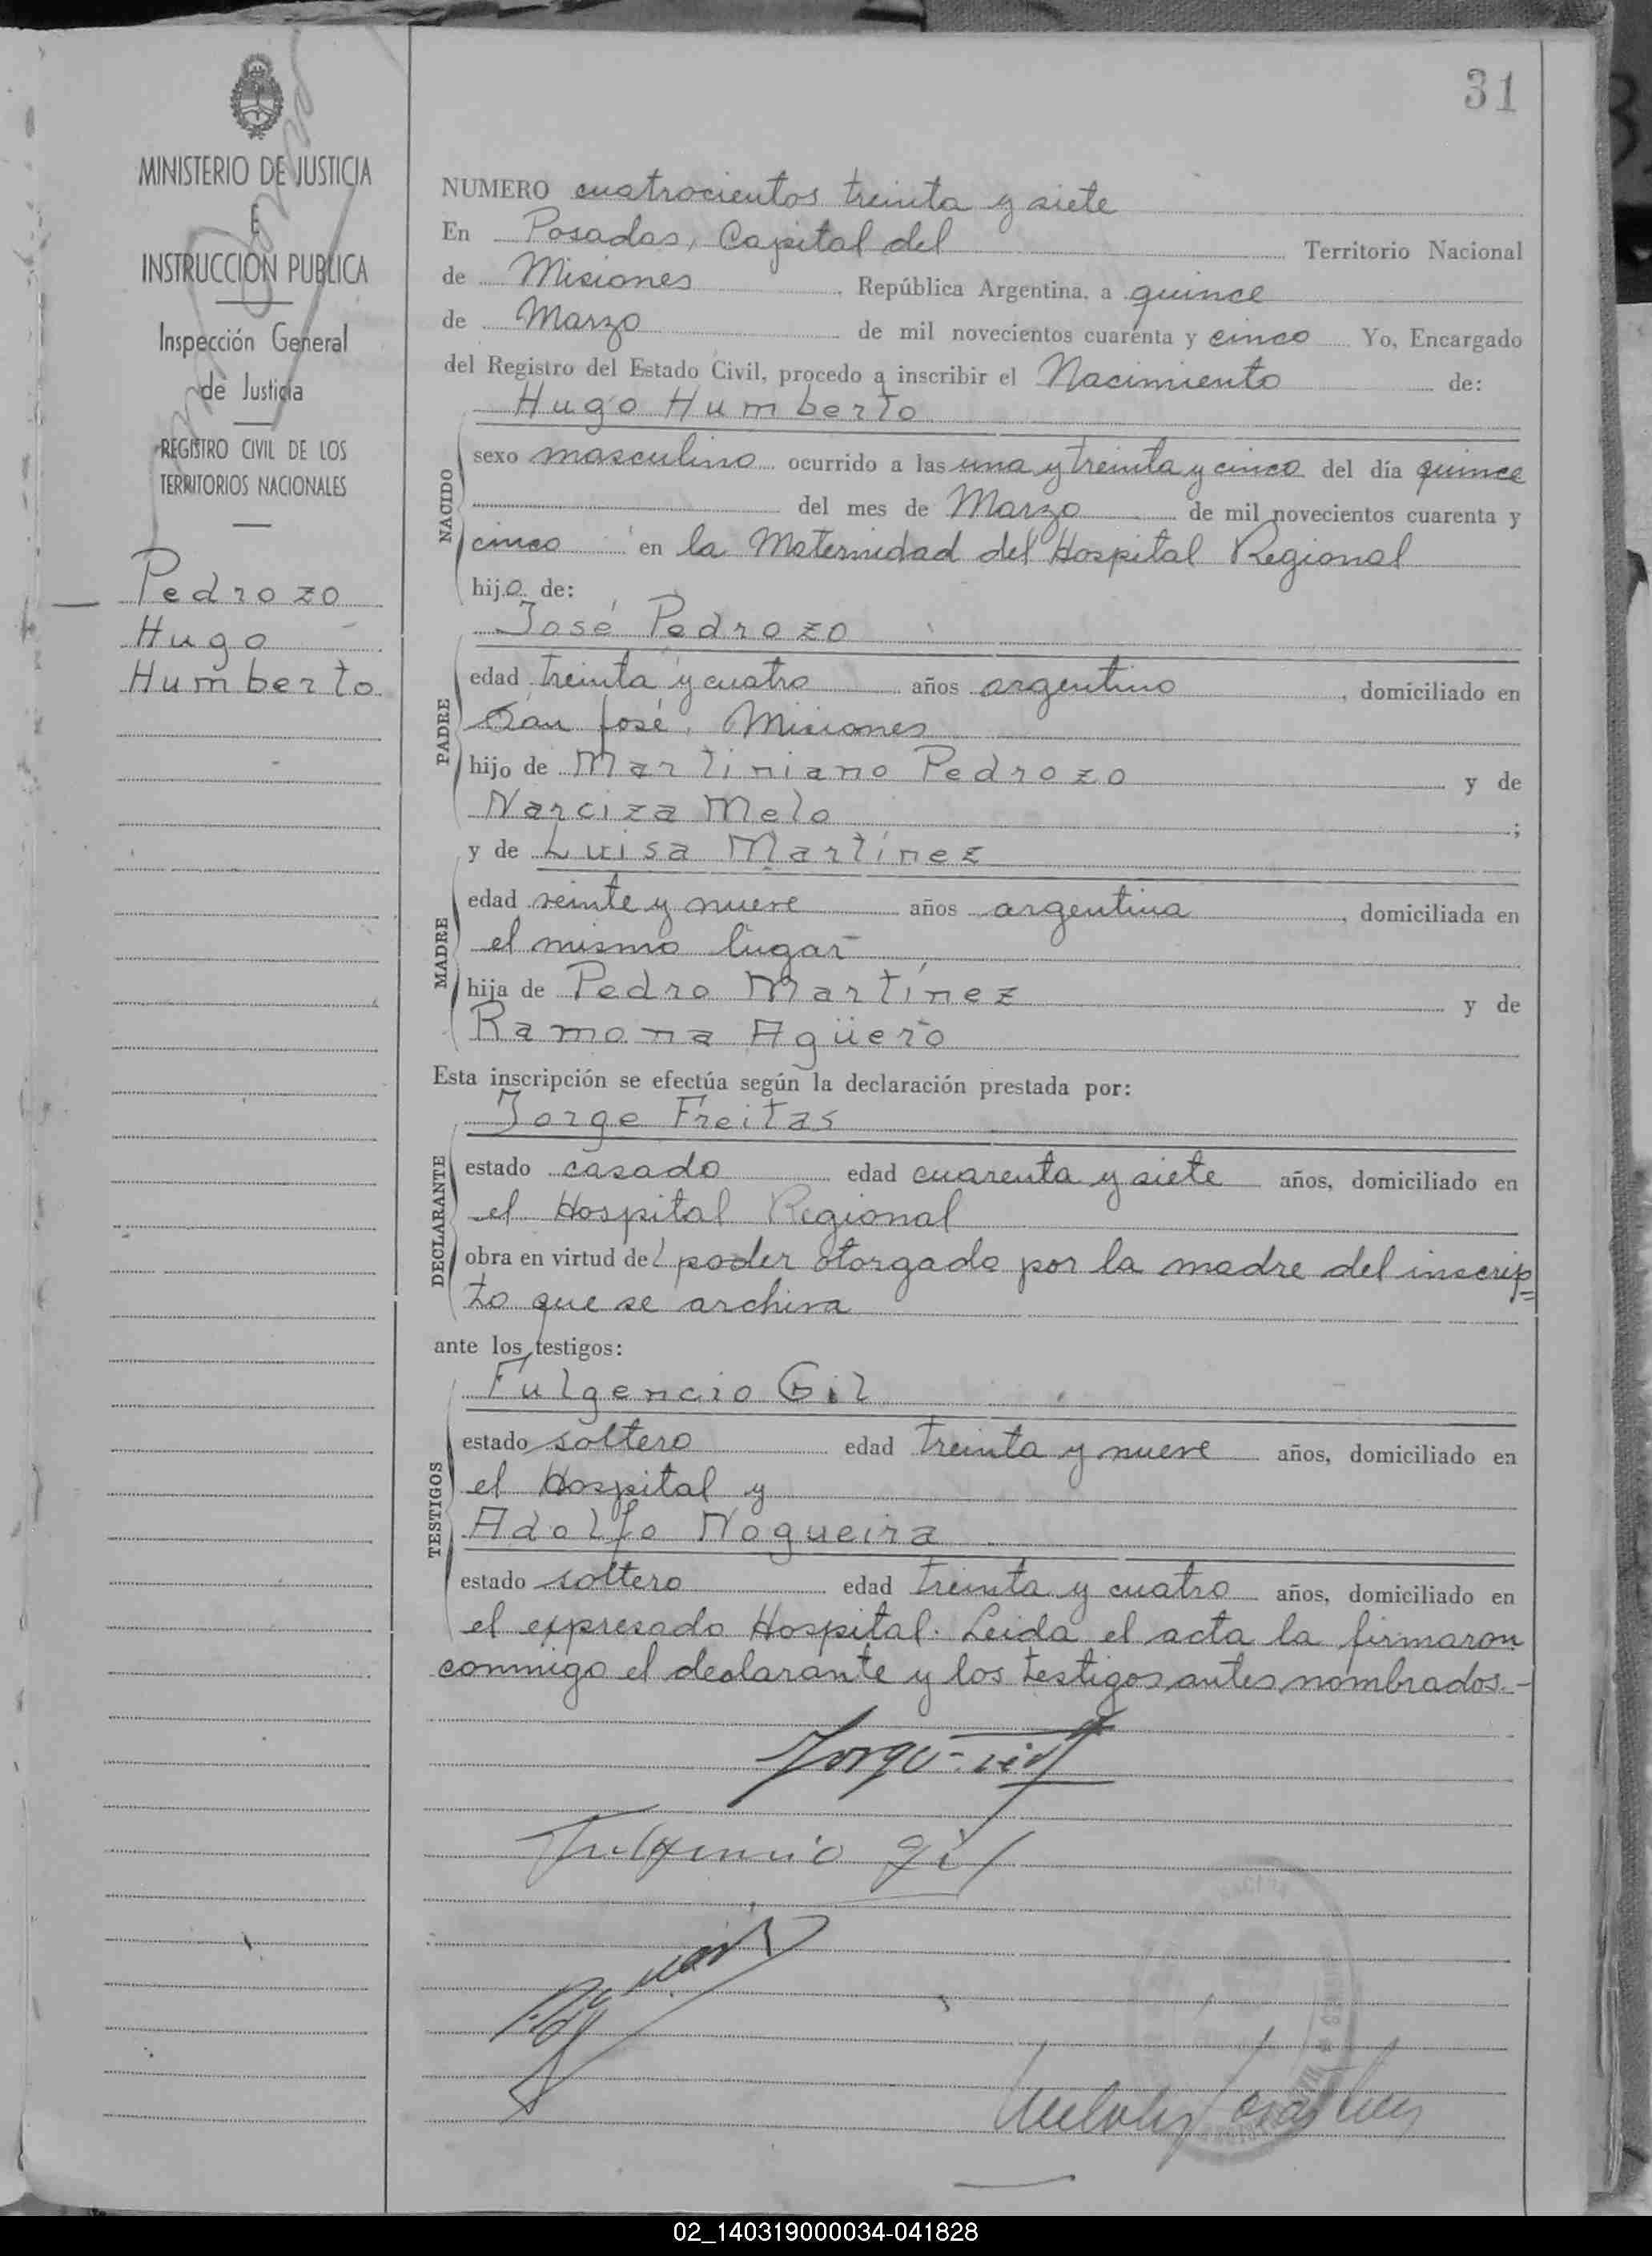 31
MINISTERIO DE JUSTICIA
E
INSTRUCCIÓN PUBLICA
Inspección General
de Justicia
REGISTRO CIVIL DE LOS
TERRITORIOS NACIONALES
Pedrozo
Hugo
Humberto
NUMERO cuatrocientos treinta y siete
En Posadas, Capital del Territorio Nacional
de Misiones, República Argentina, a quince
de Marzo de mil novecientos cuarenta y cinco Yo, Encargado
del Registro del Estado Civil, procedo a inscribir el Nacimiento de:
Hugo Humberto
NACIDO
sexo masculino ocurrido a las una y treinta y cinco del día quince
del mes de Marzo de mil novecientos cuarenta y
cinco en la Maternidad del Hospital Regional
hijo de:
José Pedrozo
PADRE
edad treinta y cuatro años argentino, domiciliado en
San José, Misiones
hijo de Martiniano Pedrozo y de
Narciza Melo;
y de Luisa Martínez
MADRE
edad veinte y nueve años argentina, domiciliada en
el mismo lugar
hija de Pedro Martínez y de
Ramona Agüero
Esta inscripción se efectúa según la declaración prestada por:
Jorge Freitas
DECLARANTE
estado casado edad cuarenta y siete años, domiciliado en
el Hospital Regional
obra en virtud del poder otorgado por la madre del inscrip=
to que se archiva
ante los testigos:
Fulgencio Gil
TESTIGOS
estado soltero edad treinta y nueve años, domiciliado en
el Hospital y
Adolfo Nogueira
estado soltero edad treinta y cuatro años, domiciliado en
el expresado Hospital. Leida el acta la firmaron
conmigo el declarante y los testigos antes nombrados.-
Fulgencio Gil
02_140319000034-041828